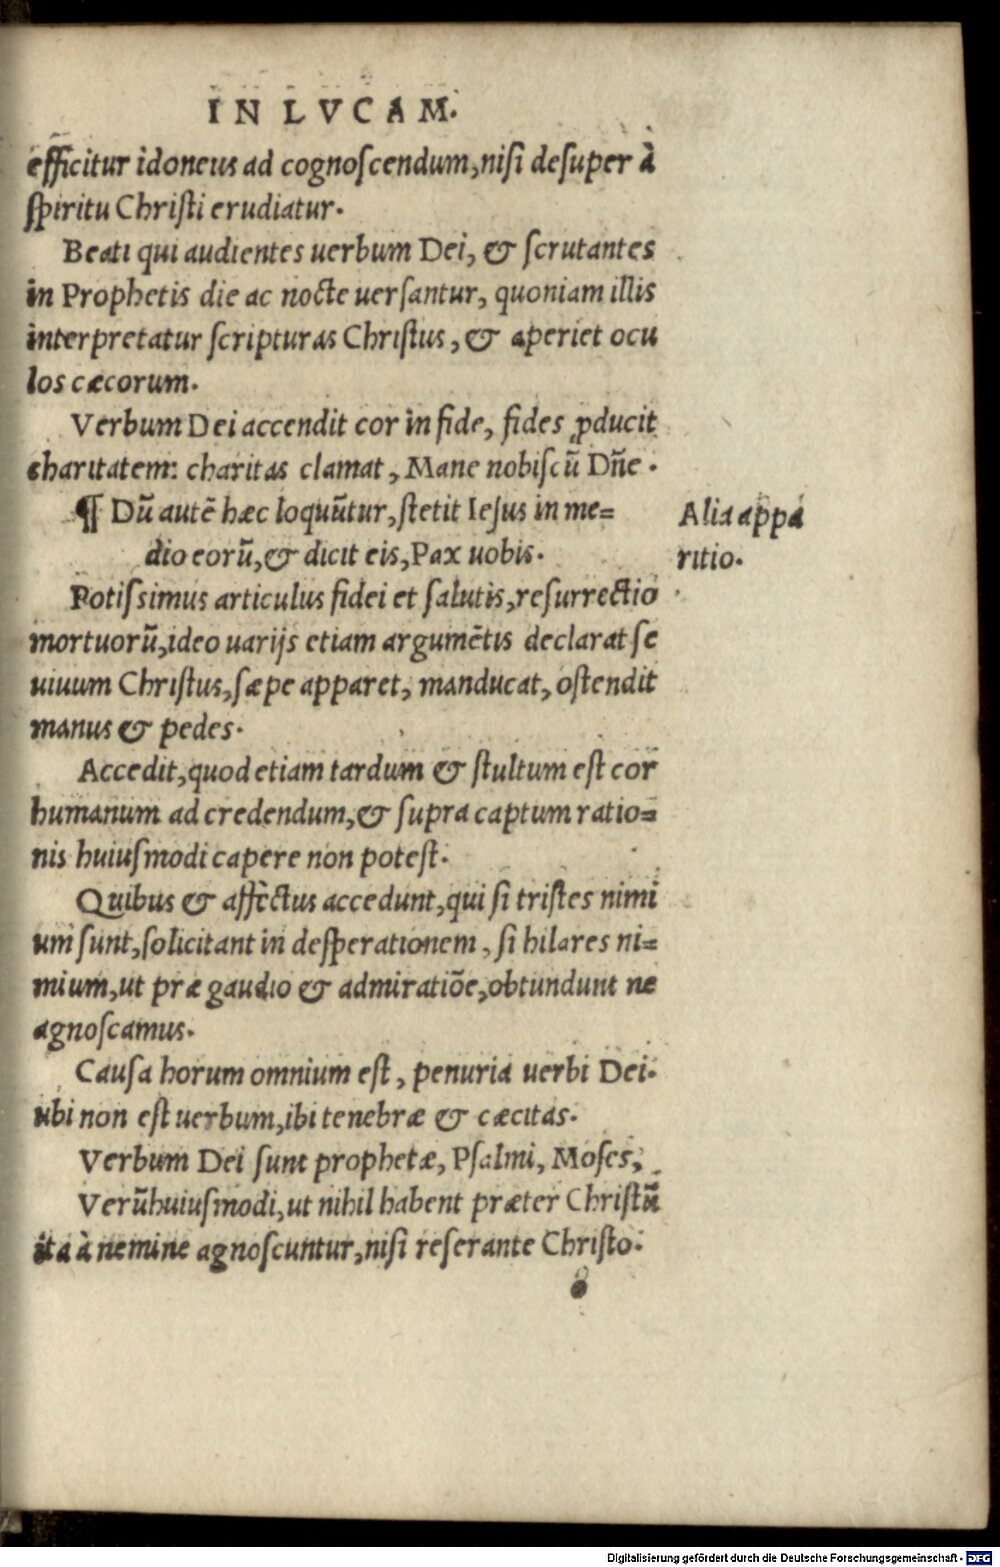 IN LVCAM.
efficitur idoneus ad cognoscendum, nisi desuper à
spiritu Christi erudiatur.
Beati qui audientes uerbum Dei, & scrutantes
in Prophetis die ac nocte uersantur, quoniam illis
interpretatur scripturas Christus, & aperiet ocu
los cæcorum.
Verbum Dei accendit cor in fide, fides ꝓducit
charitatem: charitas clamat, Mane nobiscū Dñe.
¶ Dū autē hæc loquūtur, stetit Iesus in me=
dio eorū, & dicit eis, Pax uobis.
Alia appa
ritio.
Potissimus articulus fidei et salutis, resurrectio
mortuorū, ideo uarijs etiam argumētis declarat se
uiuum Christus, sæpe apparet, manducat, ostendit
manus & pedes.
Accedit, quod etiam tardum & stultum est cor
humanum ad credendum, & supra captum ratio=
nis huiusmodi capere non potest.
Quibus & affectus accedunt, qui si tristes nimi
um sunt, solicitant in desperationem, si hilares ni=
mium, ut præ gaudio & admiratiōe, obtundunt ne
agnoscamus.
Causa horum omnium est, penuria uerbi Dei.
ubi non est uerbum, ibi tenebræ & cæcitas.
Verbum Dei sunt prophetæ, Psalmi, Moses,
Verūhuiusmodi, ut nihil habent præter Christū
ita à nemine agnoscuntur, nisi reserante Christo.
Digitalisierung gefördert durch die Deutsche Forschungsgemeinschaft - DFG